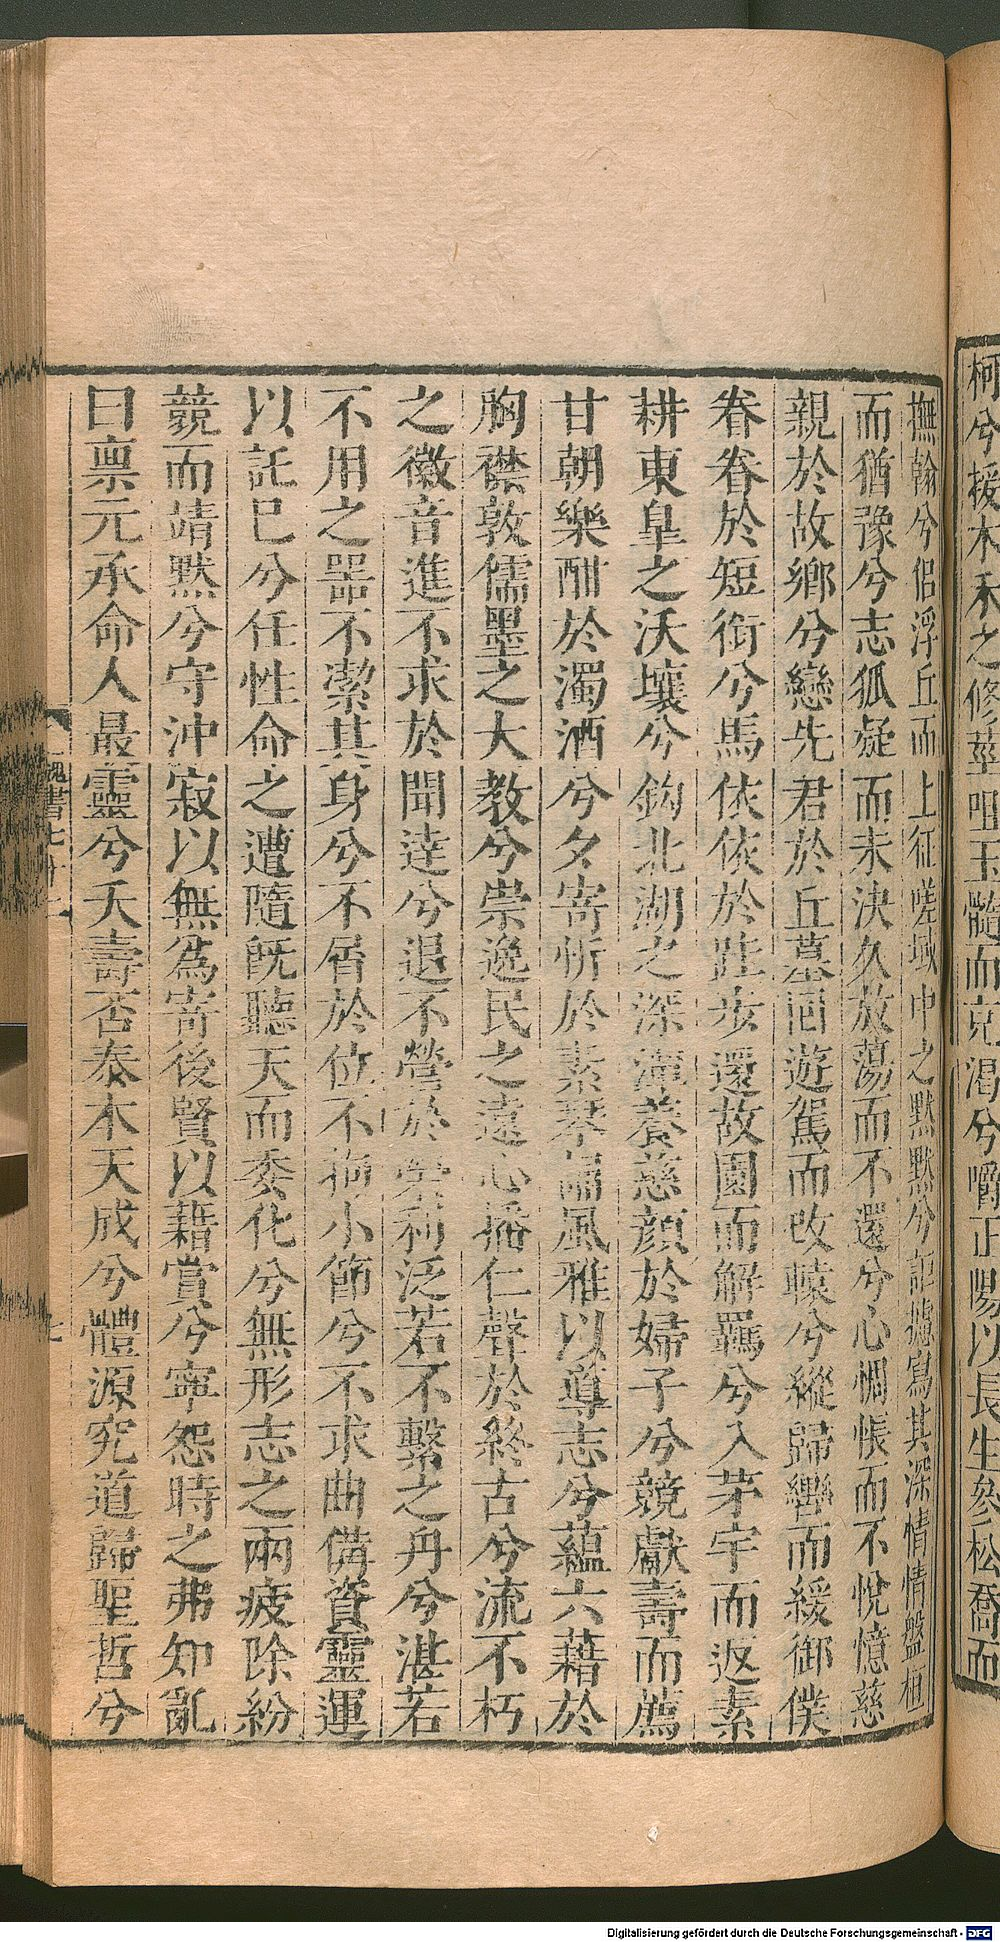 柯兮援木禾之修莖咀玉髓而充渴兮嚼正陽以長生參松喬而
撫翰兮侶浮丘而上征嗟域中之默默兮詎攄寫其深情情盤桓
而猶豫兮志狐疑而未決久放蕩而不還兮心惆悵而不悅憶慈
親於故鄉兮戀先君於丘墓回遊駕而改轅兮縱歸轡而緩御僕
眷眷於短銜兮馬依依於跬步還故園而解羈兮入茅宇而返素
耕東皐之沃壤兮鈎北湖之深潭養慈顏於婦子兮競獻壽而薦
甘朝樂酣於濁酒兮夕寄忻於素琴誦風雅以導志兮蘊六藉於
胸襟敦儒墨之大教兮崇逸民之遠心播仁聲於終古兮流不朽
之徽音進不求於聞達兮退不營於榮利泛若不繫之舟兮湛若
不用之噐不潔其身兮不屑於位不拘小節兮不求曲備資靈運
以託已兮任性命之遭隨旣聽天而委化兮無形志之兩疲除紛
競而靖默兮守沖寂以無爲寄後賢以藉賞兮寧怨時之弗知亂
曰禀元承命人最靈兮夭壽否泰木天成兮體源究道歸聖哲兮
魏書七十二
七
Digitalisierung gefördert durch die Deutsche Forschungsgemeinschaft - DFG